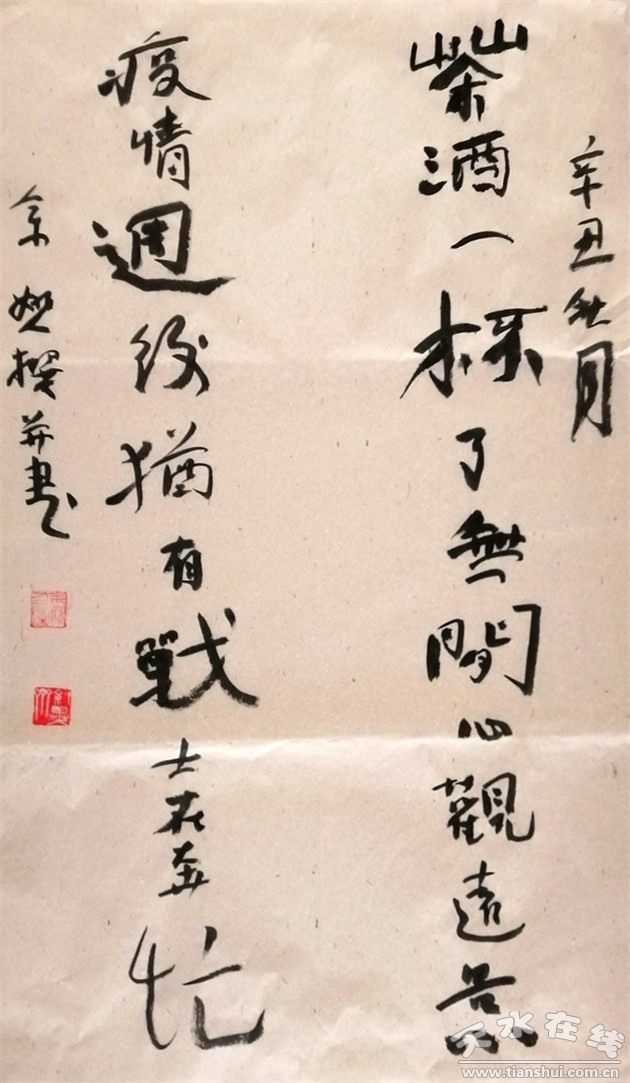 辛丑秋月
茶酒一杯了無閒心觀遠景
疫情週後猶有戰士在奔忙
余撰并書
天水在线
www.tianshui.com.cn